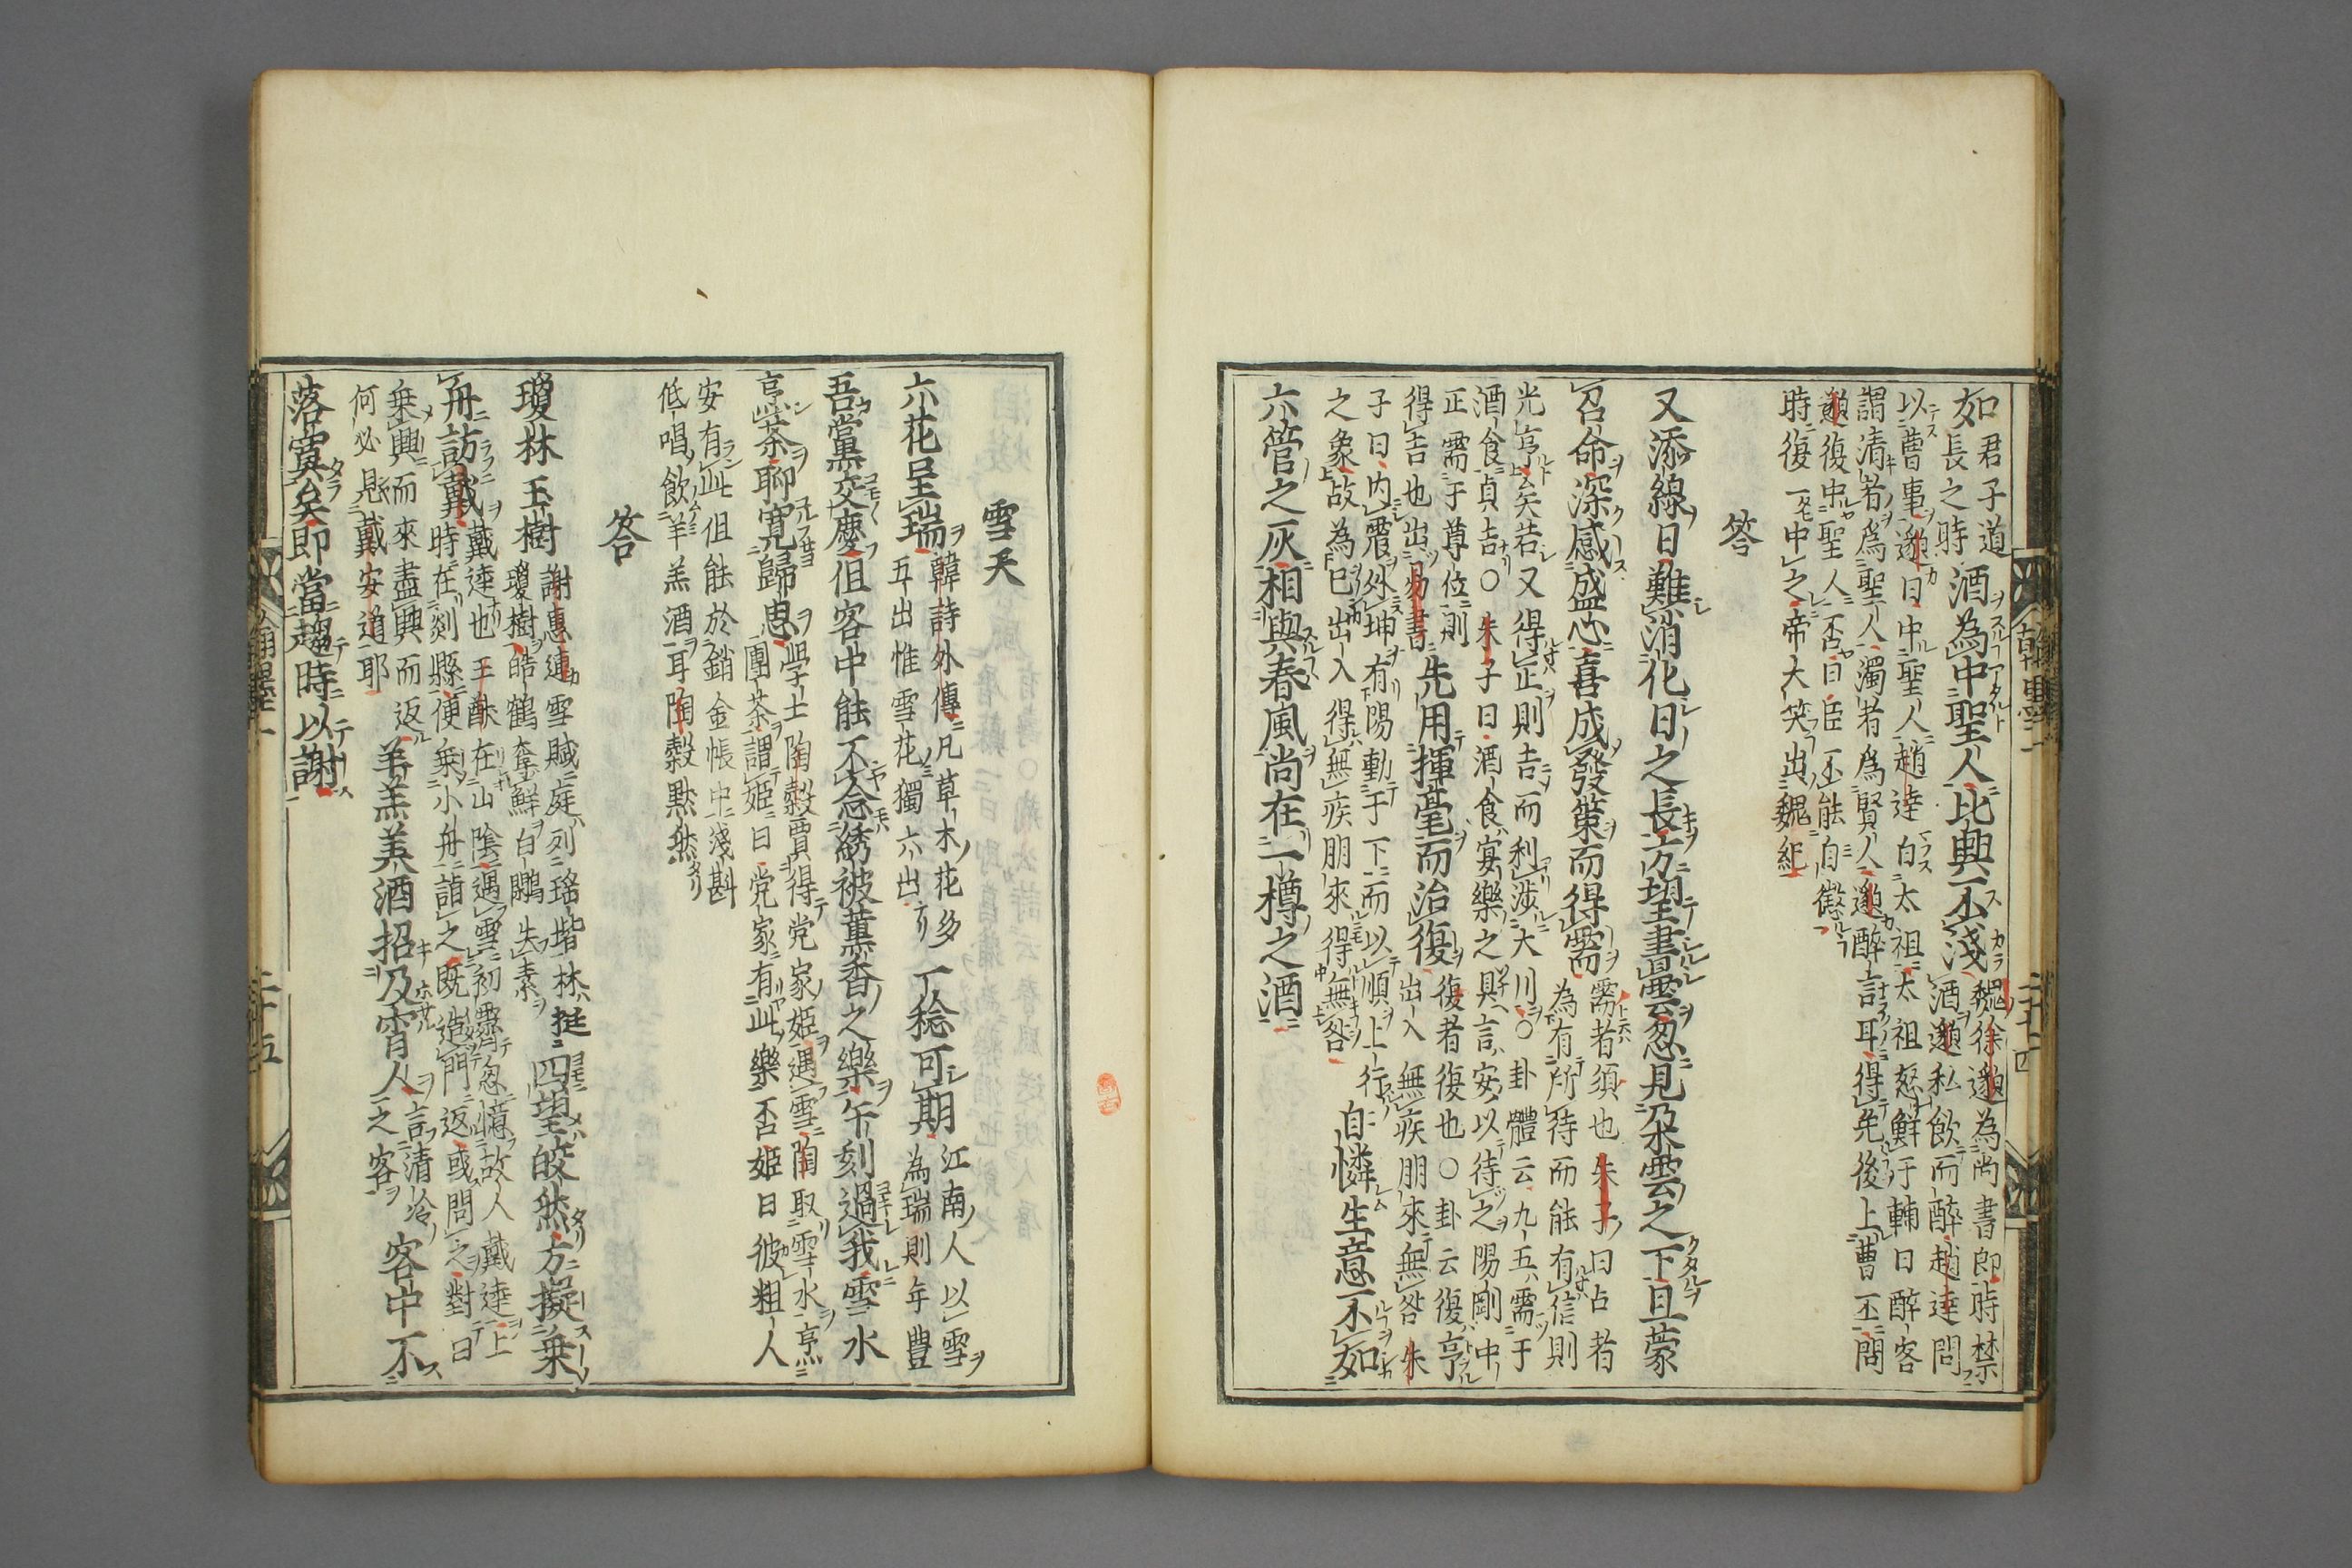 如 君子道
長之時 酒為中聖人比興不淺 魏徐邈為尚書郎時禁
酒邈私飲而醉趙達問
以曹事邈曰中聖人趙達白太祖太祖怒鮮于輔曰醉客
謂清者為聖人濁者為賢人邈醉言耳得免後上曹丕問
邈復中聖人否曰臣不能自懲
時復一中之帝大笑出魏紀
答
又添線日難消化日之長方望書雲忽見朶雲之下且蒙
召命深感盛心喜成發策而得需 需者須也朱子曰占者
為有所待而能有信則
光亨矣若又得正則吉而利涉大川○卦體云九五需于
酒食貞吉○朱子曰酒食宴樂之具言安以待之陽剛中
正需于尊位則
得吉也出易書 先用揮毫而治復 復者復也○卦云復亨
出入無疾朋來無咎朱
子曰內震外坤有陽動于下而以順上行
之象故為已出入得無疾朋來得無咎 自憐生意不如
六管之灰相與春風尚在一樽之酒
雪天
六花呈瑞 韓詩外傳凡草木花多
五出惟雪花獨六出 丁稔可期 江南人以雪
為瑞則年豊
吾黨交慶但客中能不念綉被薰香之樂午刻過我雪水
烹茶聊寬歸思 學士陶穀買得党家姬遇雪陶取雪水烹
團茶謂姬曰党家有此樂否姬曰彼粗人
安有此但能於銷金帳中淺斟
低唱飲羊羔酒耳陶穀默然
答
瓊林玉樹 謝惠連雪賦庭列瑤堦林挺
瓊樹皓鶴奪鮮白鷴失素 四望皎然方擬乗
舟訪戴 戴逵也王猷在山陰遇雪初霽忽憶故人戴逵上
時在剡縣便乗小舟詣之既造門返或問之對曰
乗興而來盡興而返
何必見戴安道耶 羊羔美酒招及宵人 言清冷
之客 客中不
落寞矣即當趨時以謝